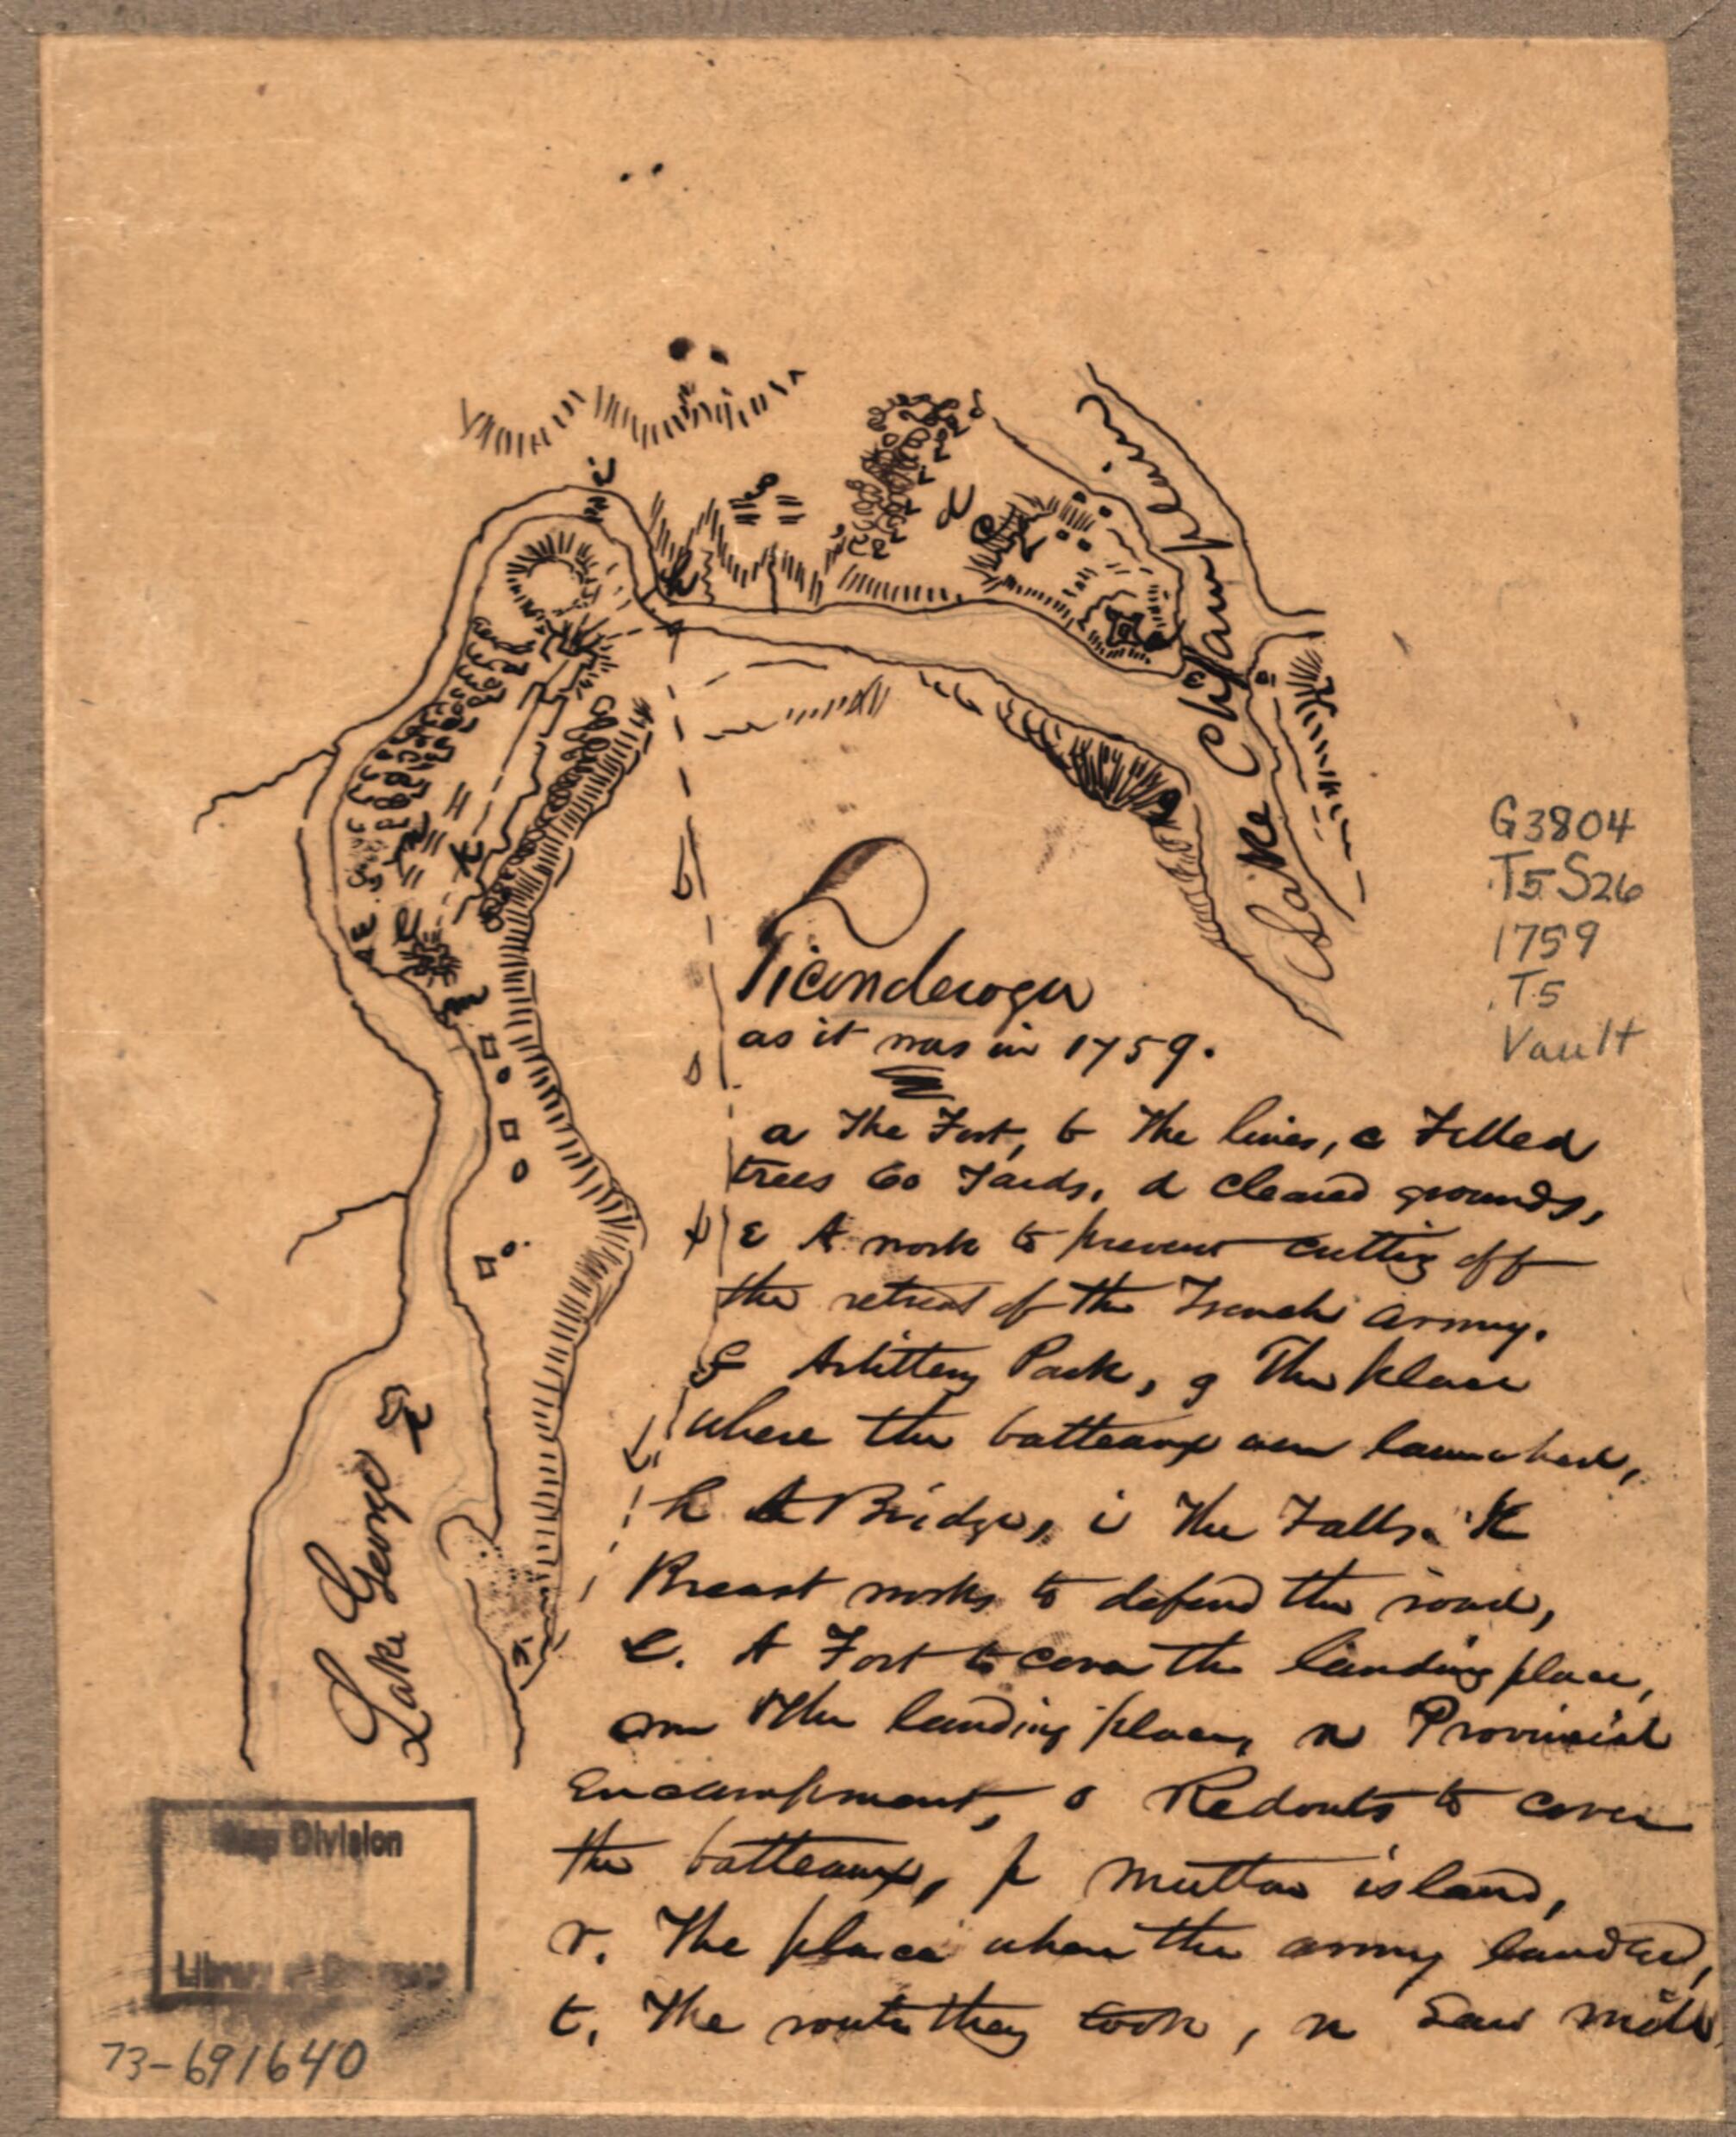 Lake Champlain
G3804
.T5 S26
1759
.T5
Vault
Ticonderoga
as it was in 1759.
a The Fort, b The lines, c Felled
trees 60 Yards, d cleared grounds,
E A work to prevent cutting off
the retreat of the French army.
f Artillery Park, g The place
where the batteaux were launched,
h A Bridge, i The Falls. K
Breast works to defend the road,
l. A Fort to cover the landing place,
m The landing place, n Provincial
Encampment, o Redouts to cover
the batteaux, p Mutton island,
r. The place where the army landed,
t. The route they took, u Saw mill
Lake George
Map Division
Library of Congress
73-691640